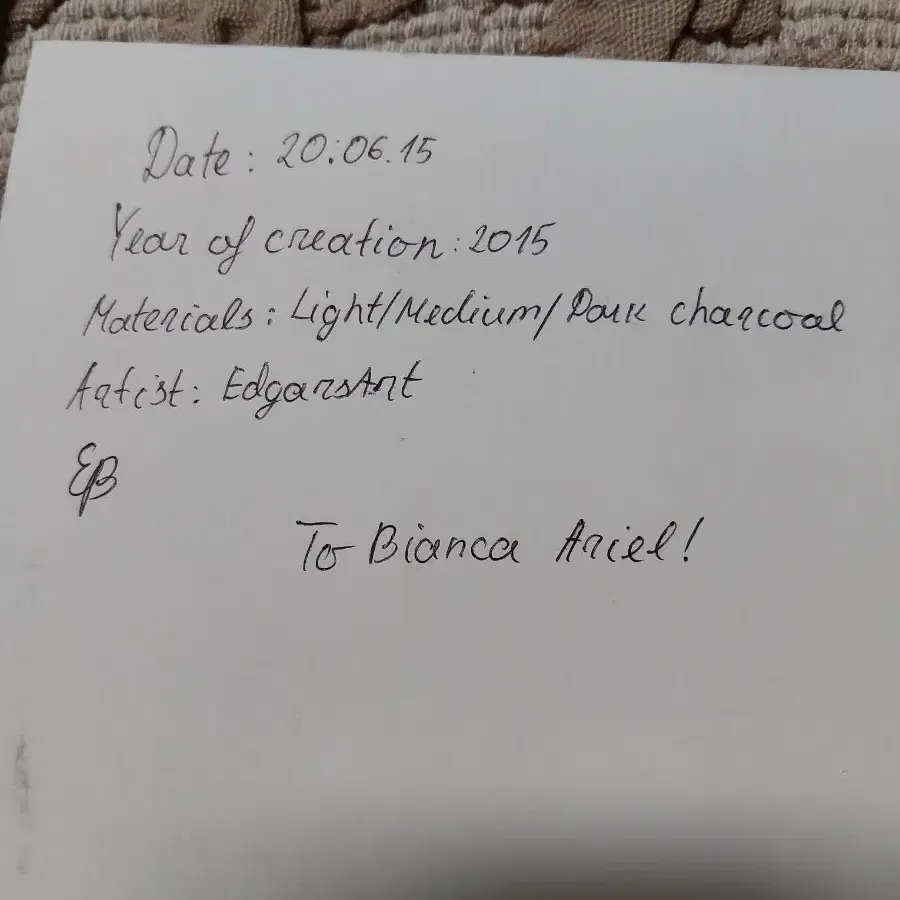 Date: 20:06.15
Year of creation: 2015
Materials: Light/Medium/Dark charcoal
Artist: EdgarsArt
EB
To Bianca Ariel!